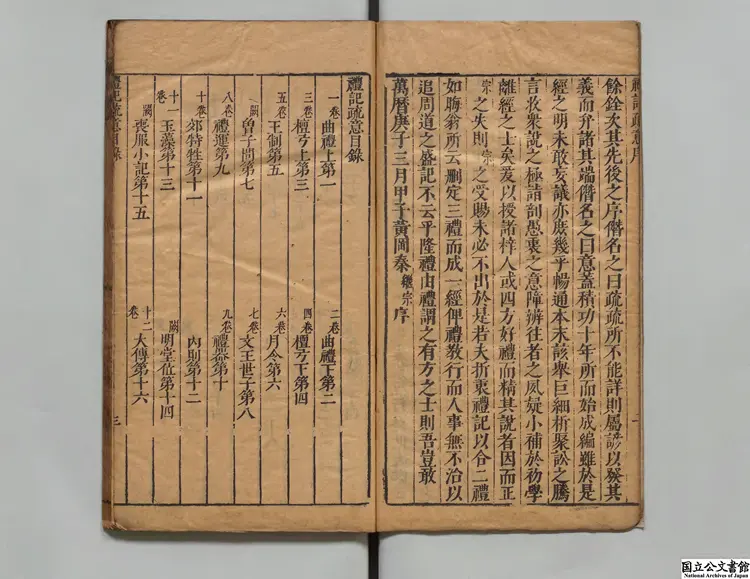 禮記疏意序
餘銓次其先後之序僭名之曰疏疏所不能詳則屬諺以發其
義而弁諸其端僭名之曰意蓋積功十年所而始成編雖於是
經之明未敢妄議亦庶幾乎暢通本末該舉巨細析聚訟之騰
言收衆說之極詣剖愚衷之意障辨往者之夙疑小補於初學
離經之士矣爰以授諸梓人或四方好禮而精其說者因而正
宗之失則宗之受賜未必不出於是若夫折衷禮記以合二禮
如晦翁所云刪定三禮而成一經俾禮教行而人事無不洽以
追周道之盛記不云乎隆禮由禮謂之有方之士則吾豈敢
萬曆庚子三月甲子黃岡秦繼宗序
禮記疏意目錄
一卷 曲禮上第一 二卷 曲禮下第二
三卷 檀弓上第三 四卷 檀弓下第四
五卷 王制第五 六卷 月令第六
闕 曾子問第七 七卷 文王世子第八
八卷 禮運第九 九卷 禮器第十
十卷 郊特牲第十一 內則第十二
十一卷 玉藻第十三 闕 明堂位第十四
闕 喪服小記第十五 十二卷 大傳第十六
禮記疏意目錄 三
国立公文書館
National Archives of Japan